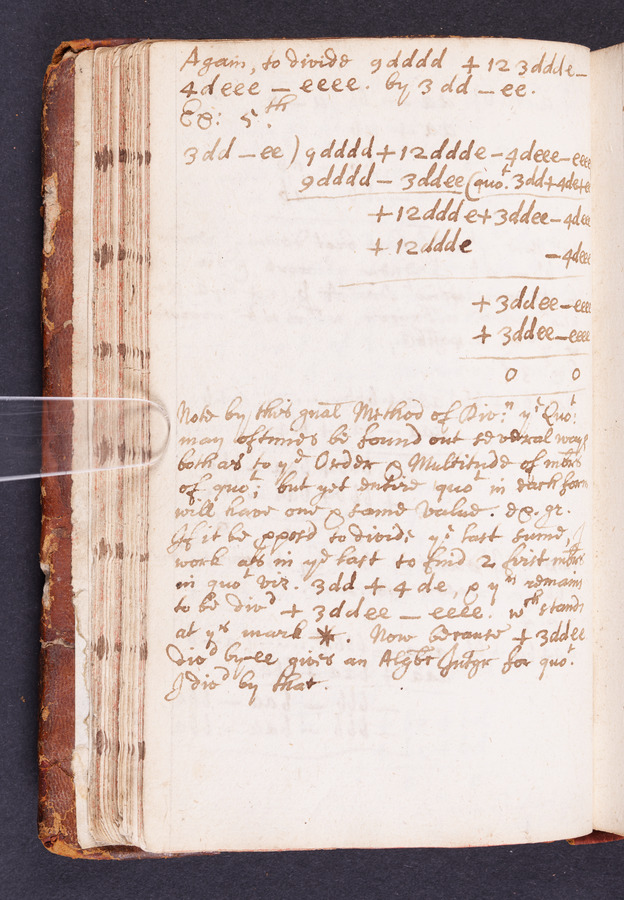 Again, to divide 9dddd + 12 3ddde –
4deee – eeee. by 3dd – ee.
Ex: 5th
3dd – ee ) 9dddd + 12ddde – 4deee – eeee
9dddd – 3ddee (quot. 3dd + 4de + e
+ 12ddde + 3ddee – 4dee
+ 12ddde – 4dee
+ 3ddee – eeee
+ 3ddee – eeee
0 0
Note by this gnal Method of Divn: ye Quot:
may oftimes be found out several ways
both as to ye Order & Multitude of mbrs
of quot; but yet entire quot in each form
will have one & same value. Ex. gr.
If it be ppos'd to divide ye last sume, I
work as in ye last to find 2 first mbrs
in quot viz. 3dd + 4de, & yn remains
to be divd + 3ddee – eeee. wch stands
at ys mark *. Now because + 3ddee
Divd by –ee gives an Algbr Intgr for quot.
I divd by that.